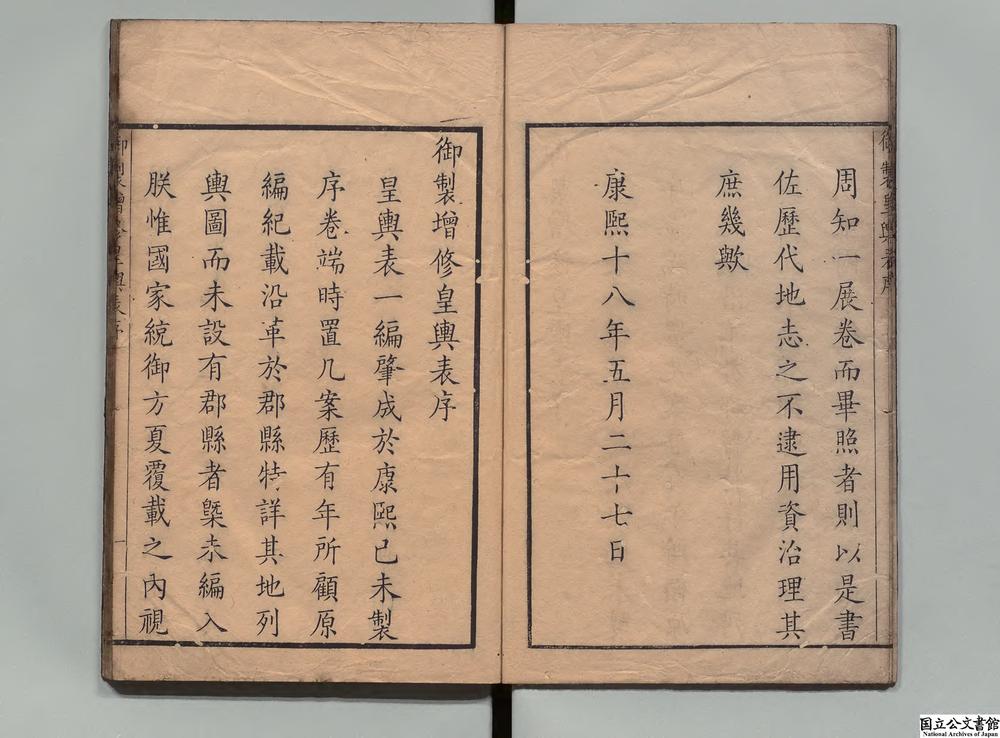 御製皇輿表序
周知一展卷而畢照者則以是書
佐歷代地志之不逮用資治理其
庶幾歟
康熙十八年五月二十七日
御製增修皇輿表序
皇輿表一編肇成於康熙已未製
序卷端時置几案歷有年所顧原
編紀載沿革於郡縣特詳其地列
輿圖而未設有郡縣者槩未編入
朕惟國家統御方夏覆載之內視
御製增修皇輿表序
一
国立公文書館
National Archives of Japan